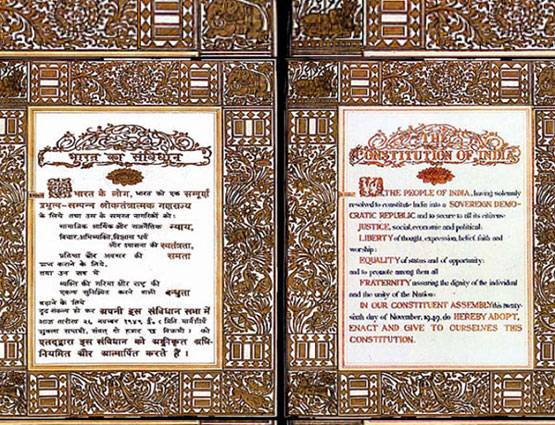 भारत का संविधान
भारत के लोग, भारत को एक सम्पूर्ण
प्रभुत्व-सम्पन्न लोकतंत्रात्मक गणराज्य
के लिये तथा उस के समस्त नागरिकों को:
सामाजिक आर्थिक और राजनैतिक न्याय,
विचार, अभिव्यक्ति, विश्वास धर्म
और उपासना की स्वतंत्रता,
प्रतिष्ठा और अवसर की समता
प्राप्त कराने के लिये,
तथा उन सब में
व्यक्ति की गरिमा और राष्ट्र की
एकता सुनिश्चित करने वाली बन्धुता
बढ़ाने के लिये
दृढ़ संकल्प हो कर अपनी इस संविधान सभा में
आज तारीख २६ नवम्बर १९४९ ई. ( मिति मार्गशीर्ष
शुक्ला सप्तमी, संवत् दो हजार छः विक्रमी ) को
एतद्द्वारा इस संविधान को अंगीकृत अधि-
नियमित और आत्मार्पित करते हैं ।
THE
CONSTITUTION OF INDIA
WE, THE PEOPLE OF INDIA, having solemnly
resolved to constitute India into a SOVEREIGN DEMO-
CRATIC REPUBLIC and to secure to all its citizens:
JUSTICE, social, economic and political;
LIBERTY of thought, expression, belief, faith and
worship;
EQUALITY of status and of opportunity;
and to promote among them all
FRATERNITY assuring the dignity of the individual
and the unity of the Nation;
IN OUR CONSTITUENT ASSEMBLY this twenty-
sixth day of November, 1949, do HEREBY ADOPT,
ENACT AND GIVE TO OURSELVES THIS
CONSTITUTION.